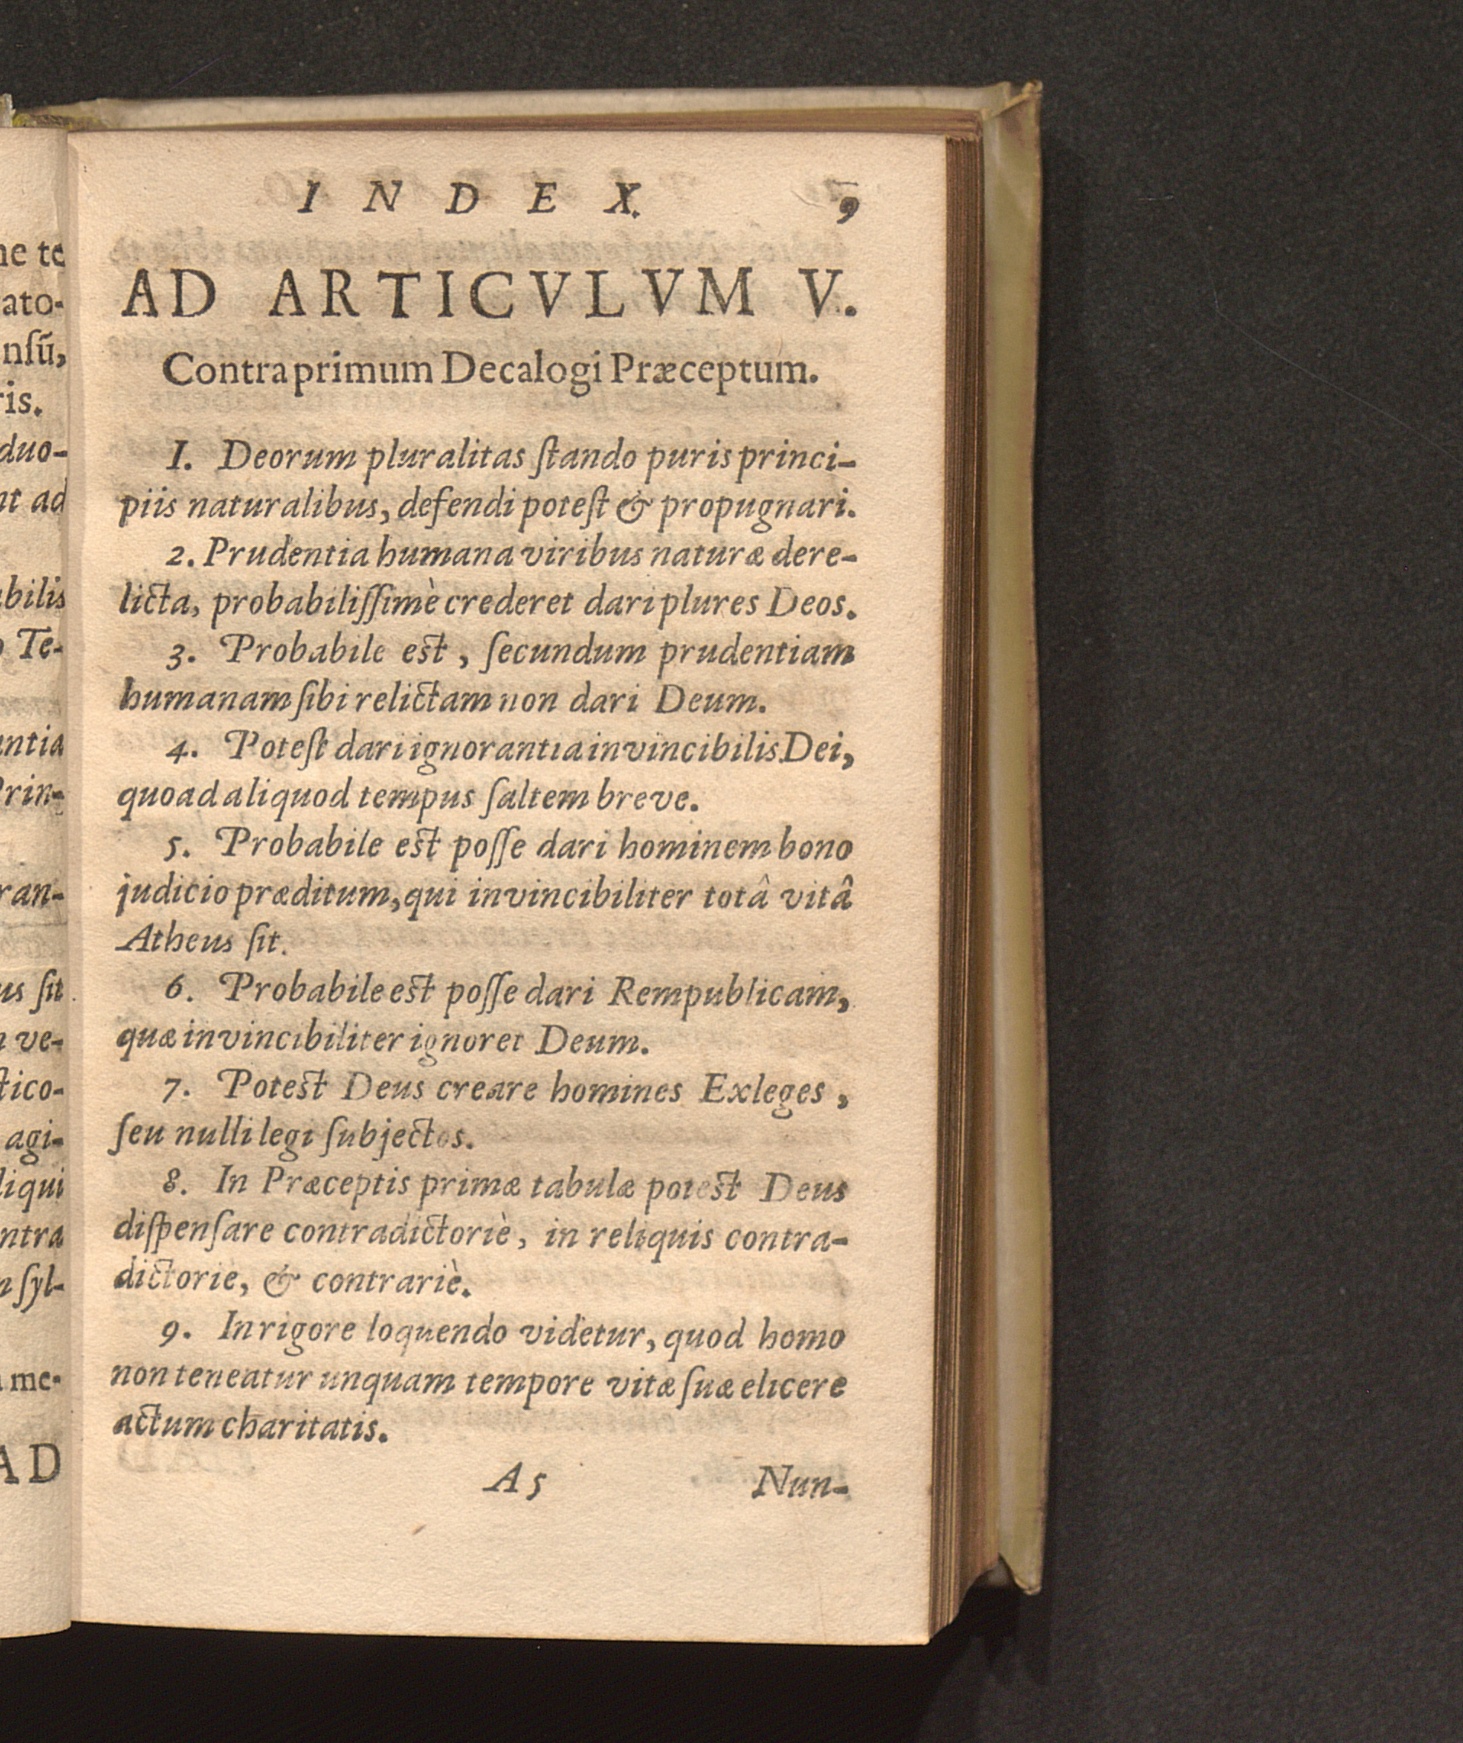 INDEX. 9
AD ARTICVLVM V.
Contra primum Decalogi Præceptum.
1. Deorum pluralitas ſtando puris princi-
piis naturalibus, defendi poteſt & propugnari.
2. Prudentia humana viribus naturæ dere-
licta, probabiliſſimè crederet dari plures Deos.
3. Probabile eſt, ſecundum prudentiam
humanam ſibi relictam non dari Deum.
4. Poteſt dari ignorantia invincibilis Dei,
quoad aliquod tempus ſaltem breve.
5. Probabile eſt poſſe dari hominem bono
judicio præditum, qui invincibiliter totâ vitâ
Atheus ſit.
6. Probabile eſt poſſe dari Rempublicam,
quæ invincibiliter ignoret Deum.
7. Poteſt Deus creare homines Exleges,
ſeu nulli legi ſubjectos.
8. In Præceptis primæ tabulæ poteſt Deus
diſpenſare contradictoriè, in reliquis contra-
dictorie, & contrariè.
9. In rigore loquendo videtur, quod homo
non teneatur unquam tempore vitæ ſuæ elicere
actum charitatis.
A5 Nun-
te
ato-
nſũ,
ris.
duo-
nt ad
bilis
Te-
antia
Prin-
ran-
us ſit
ve-
ſtico-
agi-
liqui
ntra
ſyl-
me-
AD